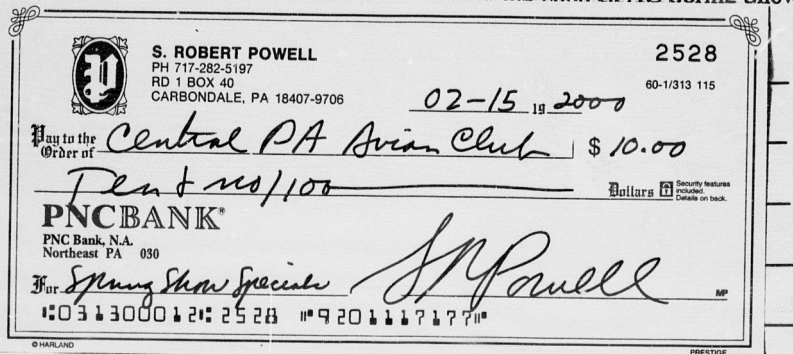 S. ROBERT POWELL
PH 717-282-5197
RD 1 BOX 40
CARBONDALE, PA 18407-9706
2528
60-1/313 115
02-15 19 2000
Pay to the Order of Central PA Avian Club $ 10.00
Ten & no/100 Dollars
Security features included. Details on back.
PNCBANK®
PNC Bank, N.A.
Northeast PA 030
For Spring Show Specials S R Powell MP
⑆031300012⑆ 2528 ⑈9201117177⑈
© HARLAND PRESTIGE